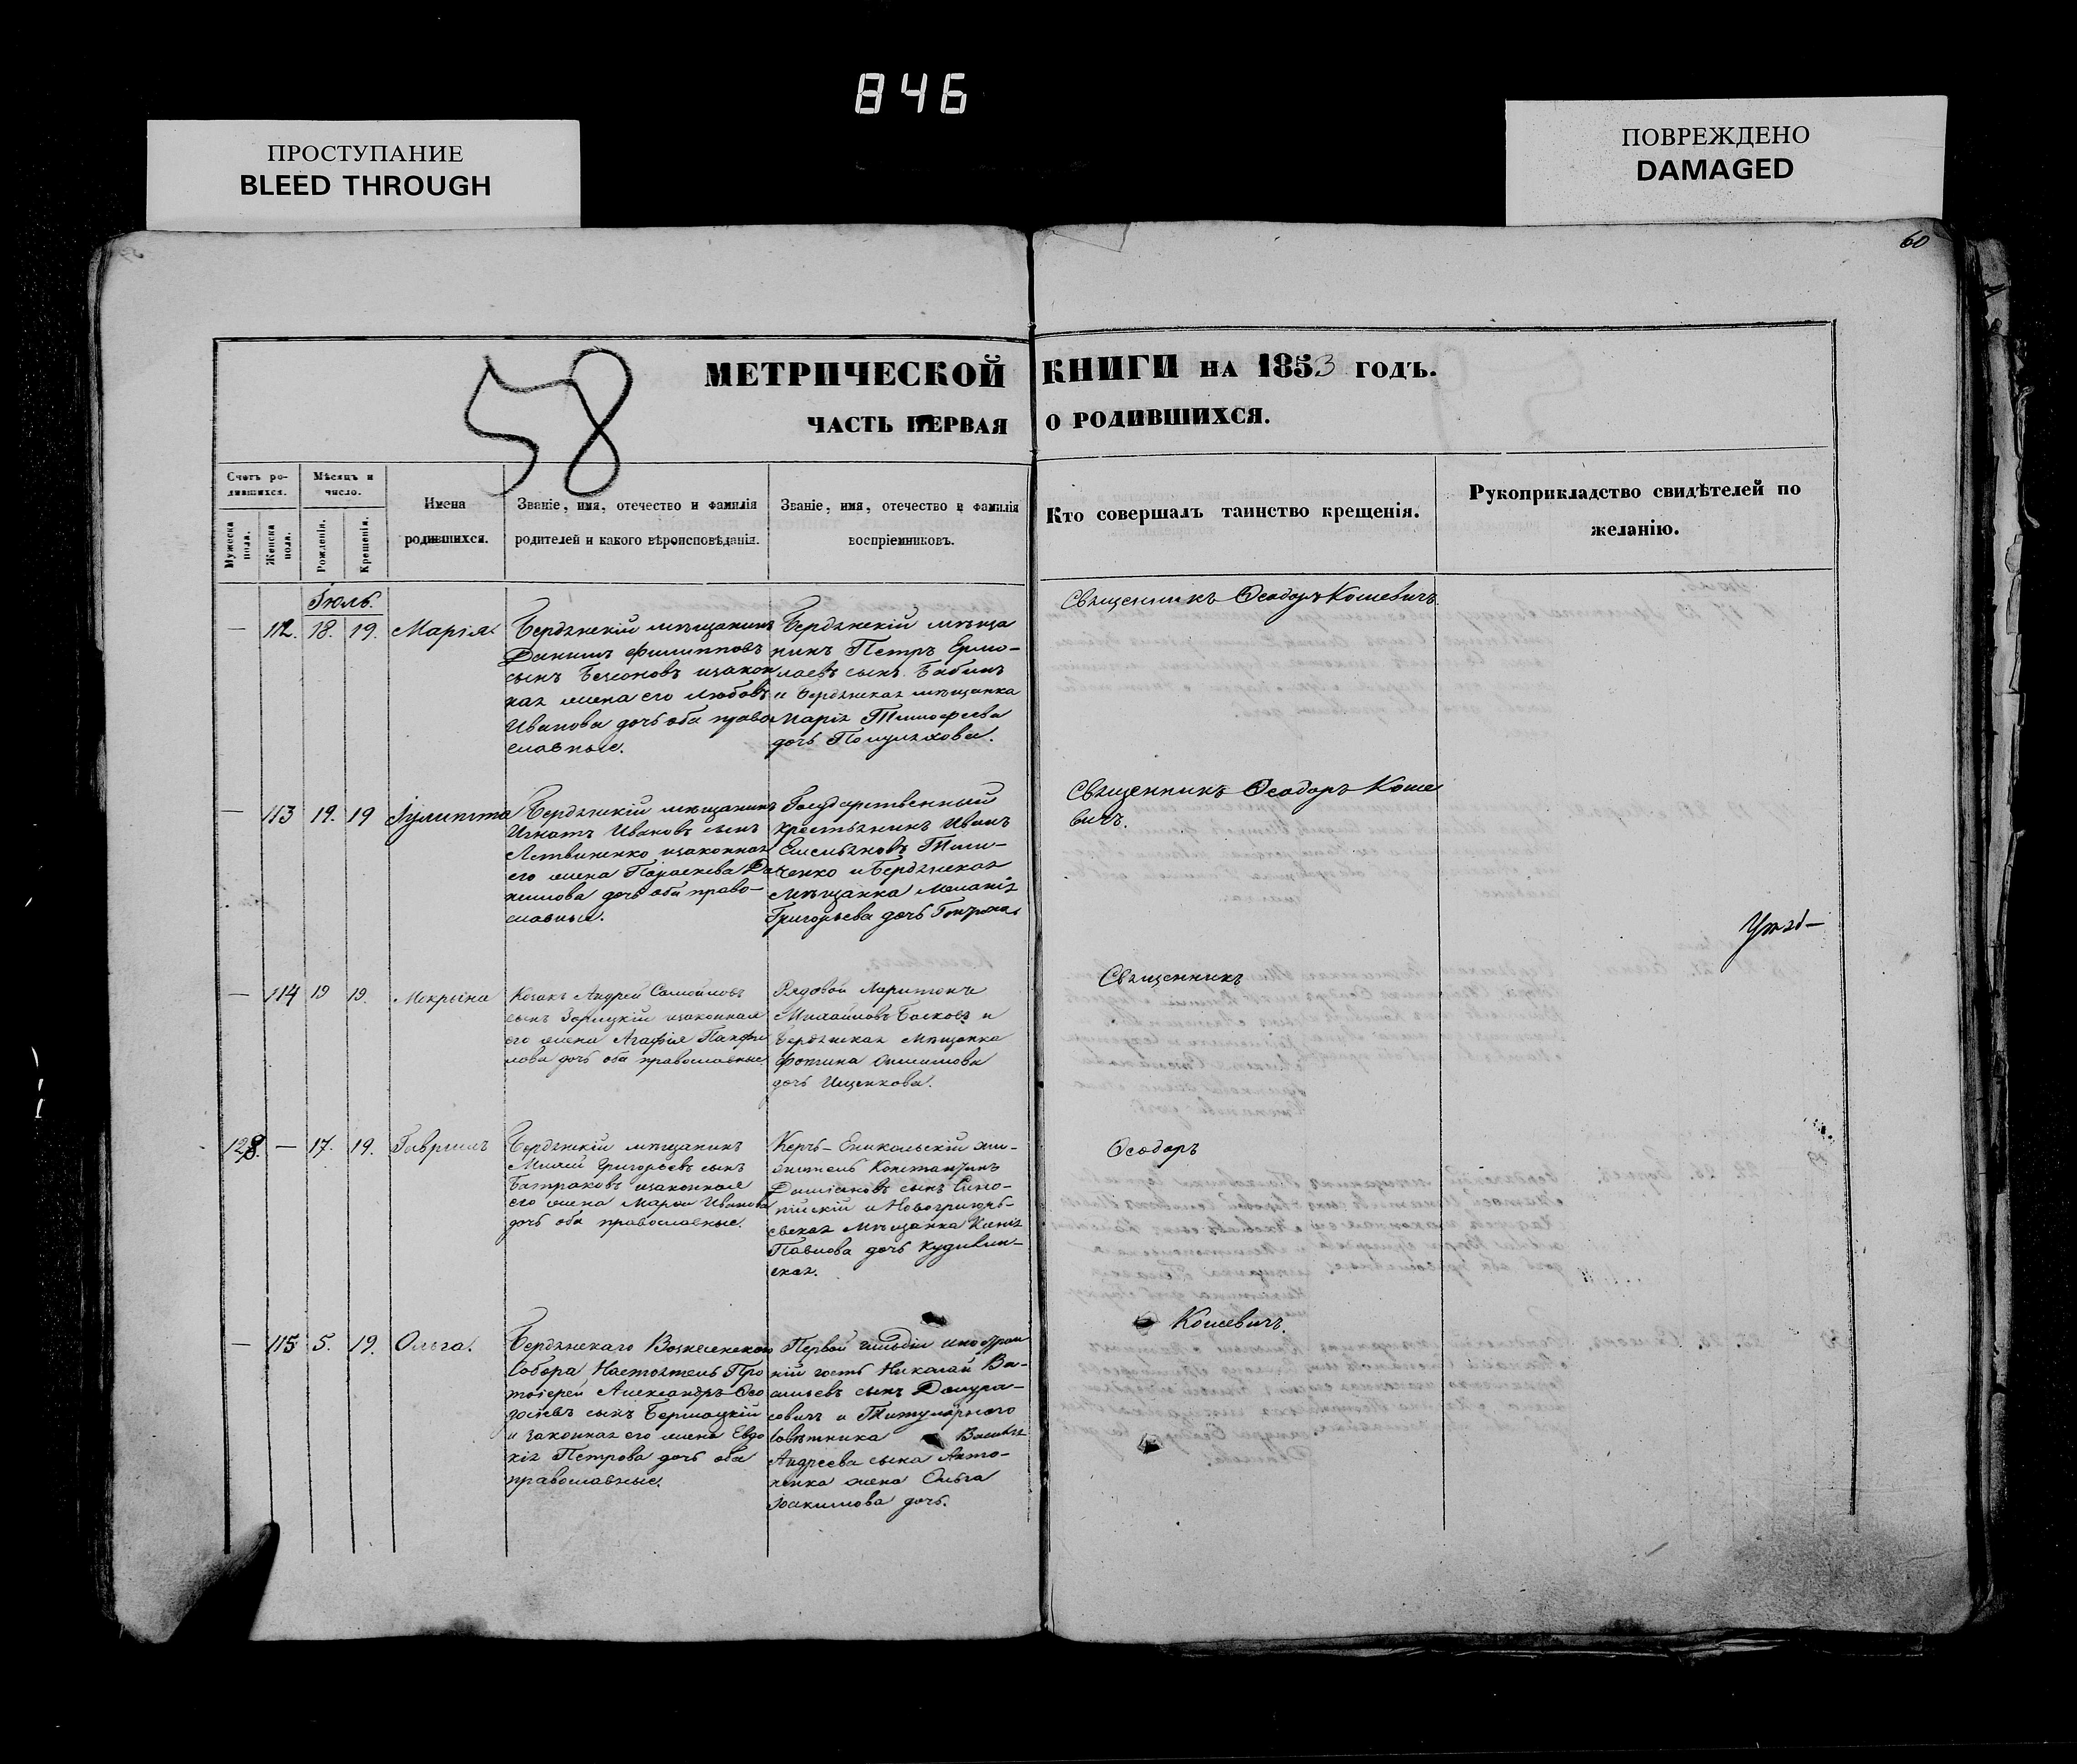 846
ПРОСТУПАНИЕ
BLEED THROUGH
ПОВРЕЖДЕНО
DAMAGED
60
58
МЕТРИЧЕСКОЙ КНИГИ НА 1853 ГОДЪ.
ЧАСТЬ ПЕРВАЯ О РОДИВШИХСЯ.
Счетъ ро-
дившихся.
Мужеска
пола.
Женска
пола.
Мѣсяцъ и
число.
Рожденія.
Крещенія.
Имена
родившихся.
Званіе, имя, отечество и фамилія
родителей и какого вѣроисповѣданія.
Званіе, имя, отечество и фамилія
воспріемниковъ.
Кто совершалъ таинство крещенія.
Рукоприкладство свидѣтелей по
желанію.
Іюль.
— 112. 18. 19. Марія
Бердянскій мѣщанинъ
Даніилъ Филипповъ
сынъ изакон
ная жена его Любовь
Иванова дочь оба право
славные.
Бердянскій мѣща
нинъ Петръ Ермо-
лаевъ сынъ Бабинъ
и Бердянская мѣщанка
Марія Тимофеева
дочь
Священникъ Ѳеодоръ Кошевичъ
— 113 19. 19 Іулитта
Бердянскій мѣщанинъ
Игнатъ Ивановъ сынъ
Литвиненко изаконная
его жена Параскева Да
нилова дочь оба право-
славные.
Государственный
крестьянинъ Иванъ
Емельяновъ Тим-
ченко и Бердянская
мѣщанка Меланія
Григорьева дочь
Священникъ Ѳеодоръ Коше
вичъ.
— 114 19 19. Макрина
Козакъ Андрей Самойловъ
сынъ Зарицкій изаконная
его жена Агафія Панфи
лова дочь оба православные.
Рядовой Харитонъ
Михайловъ и
Бердянская мѣщанка
Фотина Анисимова
дочь Ищенкова.
Священникъ
128. — 17. 19. Гавріилъ
Бердянскій мѣщанинъ
Григорьевъ сынъ
Батраковъ изаконная
его жена Марѳа Иванова
дочь оба православные.
Керчь-Еникольскій жи-
житель Константинъ
Даміановъ сынъ Сино-
пійскій и Новогригорь-
евская мѣщанка Ксенія
Павлова дочь Кудивин-
ская.
Ѳеодоръ
— 115 5. 19. Ольга.
Бердянскаго Вознесенскаго
Собора Настоятель Про
тоіерей Александръ Ѳео
досіевъ сынъ
и законная его жена Евдо
кія Петрова дочь оба
православные.
Первой гильдіи иностран
ный гость Николай Ва-
сильевъ сынъ
и Титулярнаго
Совѣтника Василія
Андреева сына Анто-
ненка жена Ольга
Іоакимова дочь.
Кошевичъ.